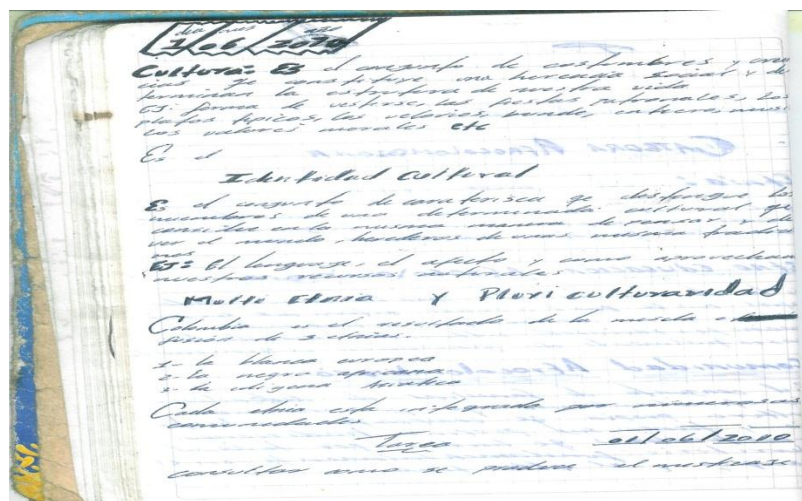 dia mes año
1/06/2010
Cultura: Es el conjunto de costumbres y creen
cias qe constituye una herencia Social y de
terminan la estrutura de nuestra vida
EJ: forma de vestirse, las fiestas patronales, los
platos tipicos, los velorios, musi
los valores morales etc
Es el
Identidad Cultural
Es el conjunto de qe distingue los
miembros de una determinada cultural qe
coincide en la misma manera de pensar y de
ver el mundo, herederos de unas misma tradicio
nes
EJ: El lenguaje, el afecto y como aprovechan
nuestros recursos naturales
Multi Etnia Y Pluri culturaridad
Colombia es el resultado de la mescla e
fusión de 3 etnias.
1- la blanca europea
2- la negra africana
3- la indigena Asiatica
Cada etnia esta integrada por numerosas
comunidades
Tarea 01/06/2010
consultar como se produce el mestisaje